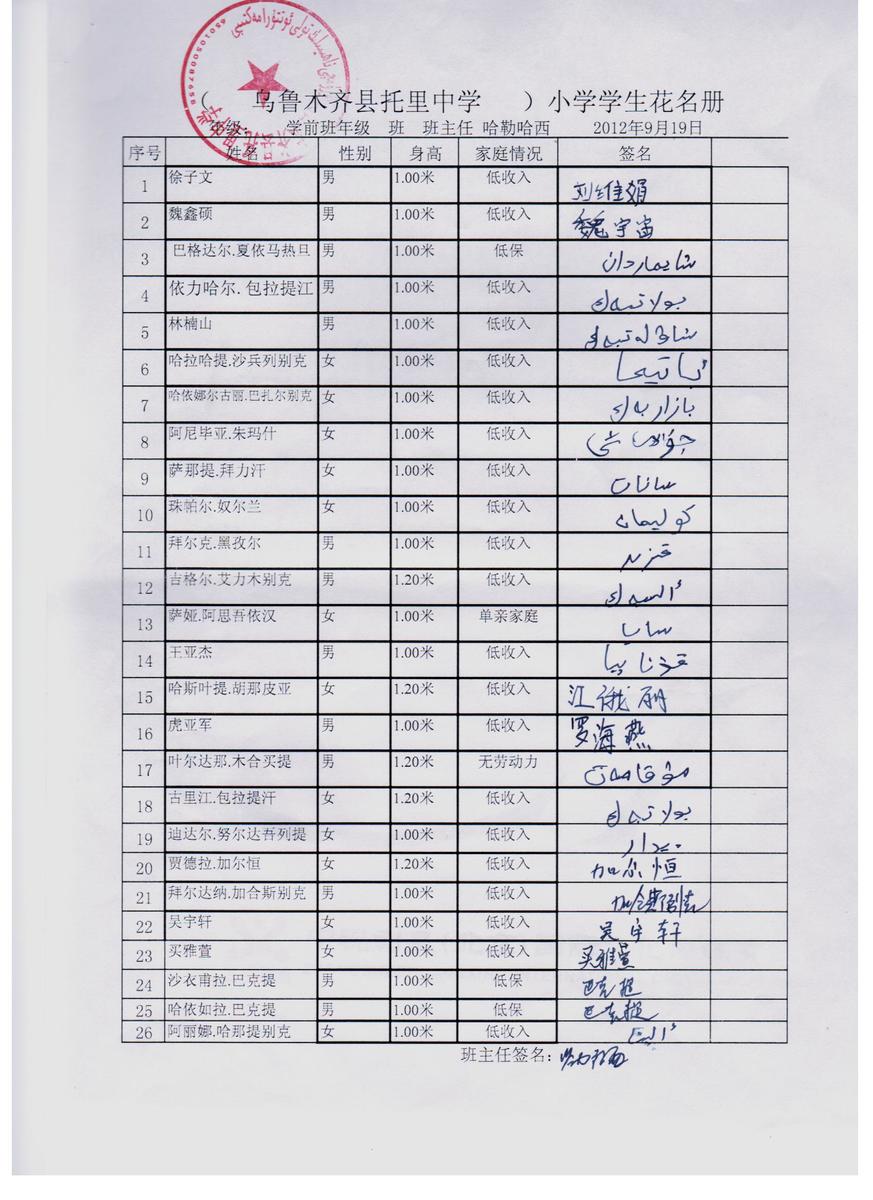 6501050087658
（ 乌鲁木齐县托里中学 ）小学学生花名册
年级: 学前班年级 班 班主任 哈勒哈西 2012年9月19日
序号 姓名 性别 身高 家庭情况 签名
1 徐子文 男 1.00米 低收入 刘维娟
2 魏鑫硕 男 1.00米 低收入 魏宇宙
3 巴格达尔.夏依马热旦 男 1.00米 低保 شايماردان
4 依力哈尔.包拉提江 男 1.00米 低收入
5 林楠山 男 1.00米 低收入
6 哈拉哈提.沙兵列别克 女 1.00米 低收入
7 哈依娜尔古丽.巴扎尔别克 女 1.00米 低收入 بازاربەك
8 阿尼毕亚.朱玛什 女 1.00米 低收入
9 萨那提.拜力汗 女 1.00米 低收入
10 珠帕尔.奴尔兰 女 1.00米 低收入
11 拜尔克.黑孜尔 男 1.00米 低收入
12 吉格尔.艾力木别克 男 1.20米 低收入
13 萨娅.阿思吾依汉 女 1.00米 单亲家庭
14 王亚杰 男 1.00米 低收入
15 哈斯叶提.胡那皮亚 女 1.20米 低收入 江俄丽
16 虎亚军 男 1.00米 低收入 罗海燕
17 叶尔达那.木合买提 男 1.20米 无劳动力
18 古里江.包拉提汗 女 1.20米 低收入
19 迪达尔.努尔达吾列提 女 1.00米 低收入
20 贾德拉.加尔恒 女 1.20米 低收入 加尔恒
21 拜尔达纳.加合斯别克 男 1.00米 低收入
22 吴宇轩 女 1.00米 低收入 吴宇轩
23 买雅萱 女 1.00米 低收入 买雅萱
24 沙衣甫拉.巴克提 男 1.00米 低保 巴克提
25 哈依如拉.巴克提 男 1.00米 低保 巴克提
26 阿丽娜.哈那提别克 女 1.00米 低收入
班主任签名：